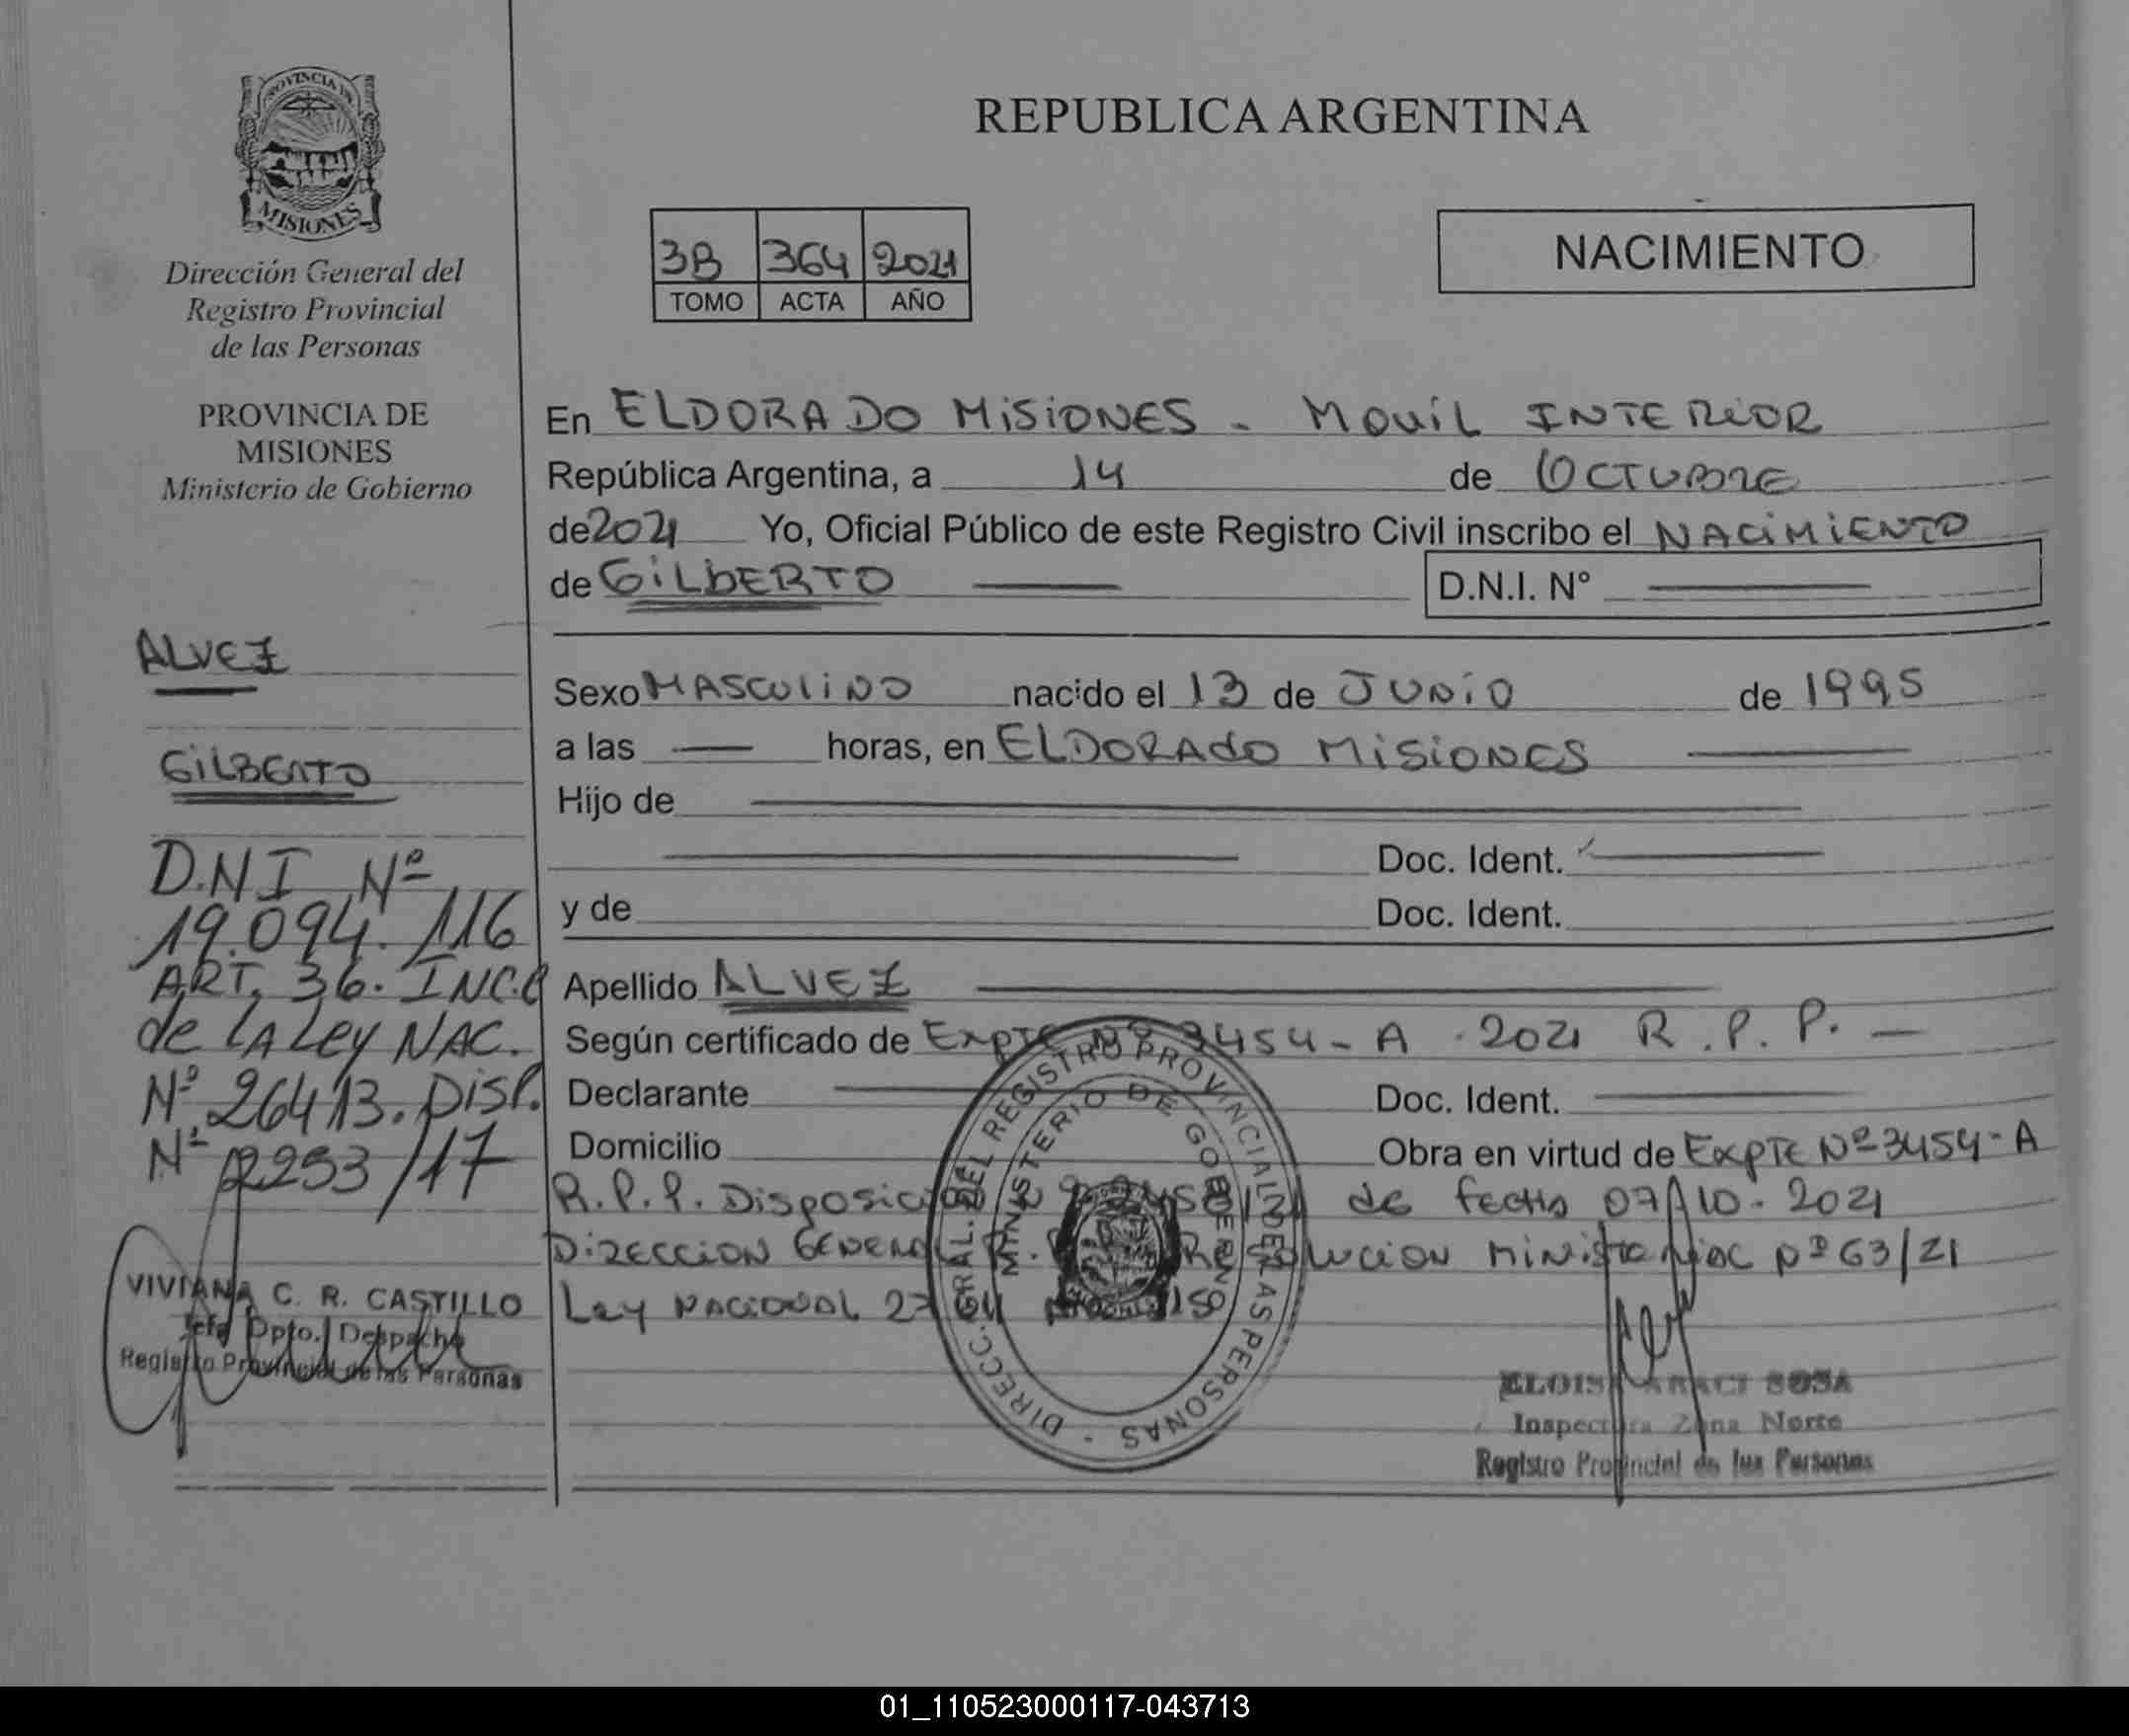 PROVINCIA DE
MISIONES
Dirección General del
Registro Provincial
de las Personas
PROVINCIA DE
MISIONES
Ministerio de Gobierno
ALVEZ
GILBERTO
D.N.I Nº
19.094.116
ART. 36. INC.C
de LA Ley NAC.
Nº 26413. DISP.
Nº 2253/17
VIVIANA C. R. CASTILLO
Jefe Dpto. Despacho
Registro Provincial de las Personas
REPUBLICA ARGENTINA
3B 364 2021
TOMO ACTA AÑO
NACIMIENTO
En ELDORADO MISIONES - MOVIL INTERIOR
República Argentina, a 14 de OCTUBRE
de 2021 Yo, Oficial Público de este Registro Civil inscribo el NACIMIENTO
de GILBERTO D.N.I. Nº
Sexo MASCULINO nacido el 13 de JUNIO de 1995
a las horas, en ELDORADO MISIONES
Hijo de
Doc. Ident.
y de Doc. Ident.
Apellido ALVEZ
Según certificado de Expte Nº 3454 - A - 2021 R.P.P.
Declarante Doc. Ident.
Domicilio Obra en virtud de Expte Nº 3454 - A
R.P.P. Disposición de fecha 07/10-2021
Dirección General Resolución Ministerial Nº 63/21
Ley Nacional
DIRECC. GRAL. DEL REGISTRO PROVINCIAL DE LAS PERSONAS -
MINISTERIO DE GOBIERNO
ARACI SOSA
Inspectora Zona Norte
Registro Provincial de las Personas
01_110523000117-043713